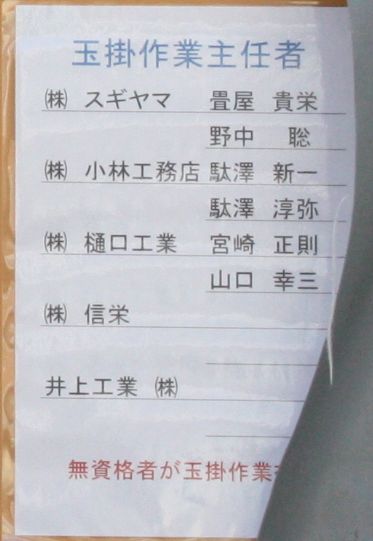 玉掛作業主任者
㈱ スギヤマ 畳屋 貴栄
野中 聡
㈱ 小林工務店 駄澤 新一
駄澤 淳弥
㈱ 樋口工業 宮崎 正則
山口 幸三
㈱ 信栄
井上工業 ㈱
無資格者が玉掛作業